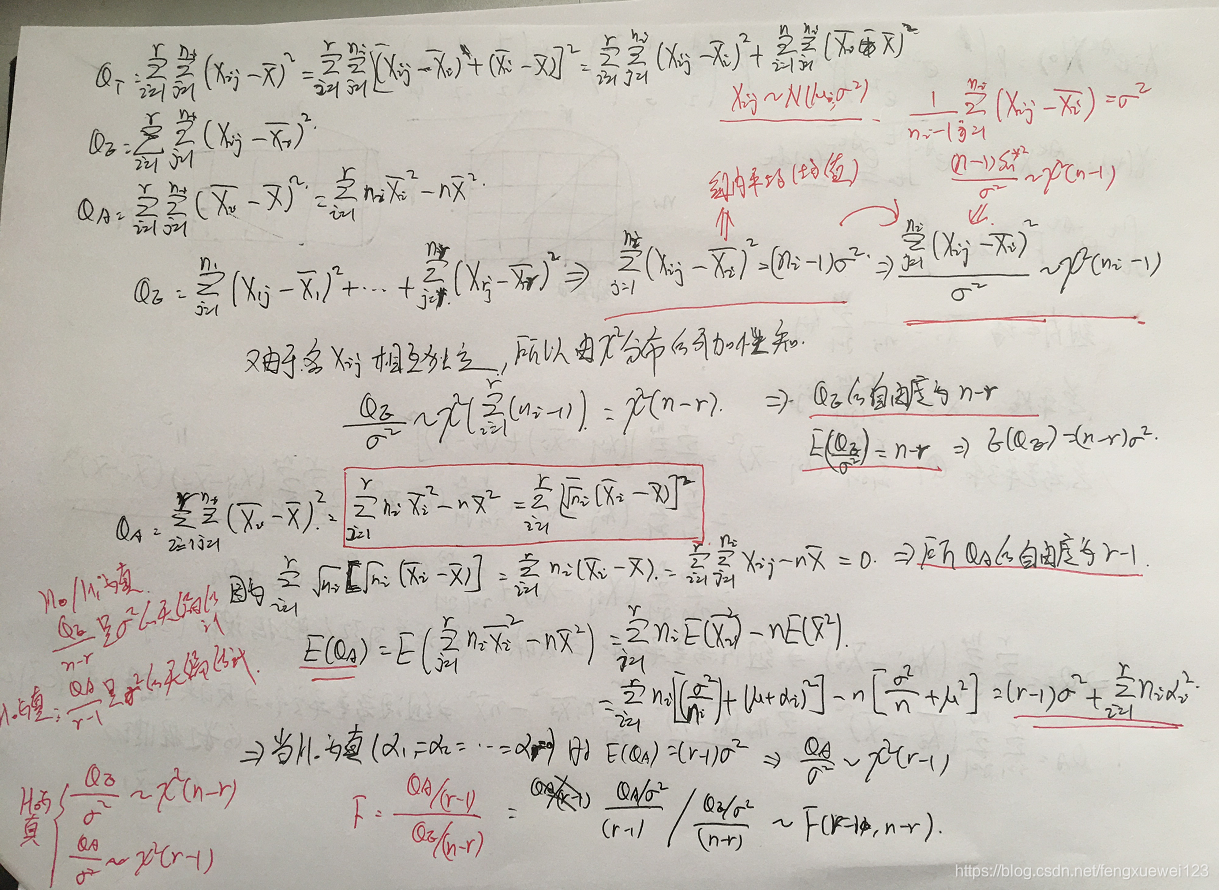 Q_T = \sum_{i=1}^{r} \sum_{j=1}^{n_i} (X_{ij} - \bar{X})^2 = \sum_{i=1}^{r} \sum_{j=1}^{n_i} [(X_{ij} - \bar{X_i}) + (\bar{X_i} - \bar{X})]^2 = \sum_{i=1}^{r} \sum_{j=1}^{n_i} (X_{ij} - \bar{X_i})^2 + \sum_{i=1}^{n} \sum_{j=1}^{n_i} (\bar{X_i} - \bar{X})^2
X_{ij} \sim N(\mu_i, \sigma^2) \frac{1}{n_i - 1} \sum_{j=1}^{n_i} (X_{ij} - \bar{X_i}) = \sigma^2
Q_E = \sum_{i=1}^{r} \sum_{j=1}^{n_i} (X_{ij} - \bar{X_i})^2.
组内平均(均值) \frac{(n-1) S_n^{*2}}{\sigma^2} \sim \chi^2(n-1)
Q_A = \sum_{i=1}^{r} \sum_{j=1}^{n_i} (\bar{X_i} - \bar{X})^2 = \sum_{i=1}^{r} n_i \bar{X_i}^2 - n\bar{X}^2.
Q_E = \sum_{j=1}^{n_1} (X_{1j} - \bar{X_1})^2 + \cdots + \sum_{j=1}^{n_r} (X_{rj} - \bar{X_r})^2 ⇒ \sum_{j=1}^{n_i} (X_{ij} - \bar{X_i})^2 = (n_i - 1)\sigma^2. ⇒ \frac{\sum_{j=1}^{n_i} (X_{ij} - \bar{X_i})^2}{\sigma^2} \sim \chi^2(n_i - 1)
又由于各 X_{ij} 相互独立, 所以由 \chi^2 分布的可加性知.
\frac{Q_E}{\sigma^2} \sim \chi^2(\sum_{i=1}^{r} (n_i - 1)) = \chi^2(n-r). ⇒ Q_E的自由度为 n-r
E(\frac{Q_E}{\sigma^2}) = n-r ⇒ E(Q_E) = (n-r)\sigma^2.
Q_A = \sum_{i=1}^{r} \sum_{j=1}^{n_i} (\bar{X_i} - \bar{X})^2 = \sum_{i=1}^{r} n_i \bar{X_i}^2 - n\bar{X}^2 = \sum_{i=1}^{r} [\sqrt{n_i} (\bar{X_i} - \bar{X})]^2
因为 \sum_{i=1}^{r} \sqrt{n_i} [\sqrt{n_i} (\bar{X_i} - \bar{X})] = \sum_{i=1}^{r} n_i (\bar{X_i} - \bar{X}) = \sum_{i=1}^{r} \sum_{j=1}^{n_i} X_{ij} - n\bar{X} = 0. ⇒ 所以 Q_A的自由度为 r-1.
H_0/H_1为真
\frac{Q_E}{n-r} 是 \sigma^2的无偏估计
E(Q_A) = E(\sum_{j=1}^{r} n_i \bar{X_i}^2 - n\bar{X}^2) = \sum_{j=1}^{r} n_i E(\bar{X_i}^2) - nE(\bar{X}^2).
H_0为真: \frac{Q_A}{r-1} 是 \sigma^2的无偏估计.
= \sum_{i=1}^{r} n_i [(\frac{\sigma^2}{n_i}) + (\mu + \alpha_i)^2] - n[\frac{\sigma^2}{n} + \mu^2] = (r-1)\sigma^2 + \sum_{i=1}^{r} n_i \alpha_i^2.
⇒ 当H_0为真 (\alpha_1 = \alpha_2 = \cdots = \alpha_r = 0) 时 E(Q_A) = (r-1)\sigma^2 ⇒ \frac{Q_A}{\sigma^2} \sim \chi^2(r-1)
H_0为真 { \frac{Q_E}{\sigma^2} \sim \chi^2(n-r)
\frac{Q_A}{\sigma^2} \sim \chi^2(r-1)
F = \frac{Q_A/(r-1)}{Q_E/(n-r)} = \frac{Q_A/\sigma^2}{(r-1)} / \frac{Q_E/\sigma^2}{(n-r)} \sim F(r-1, n-r).
https://blog.csdn.net/fengxuewei123